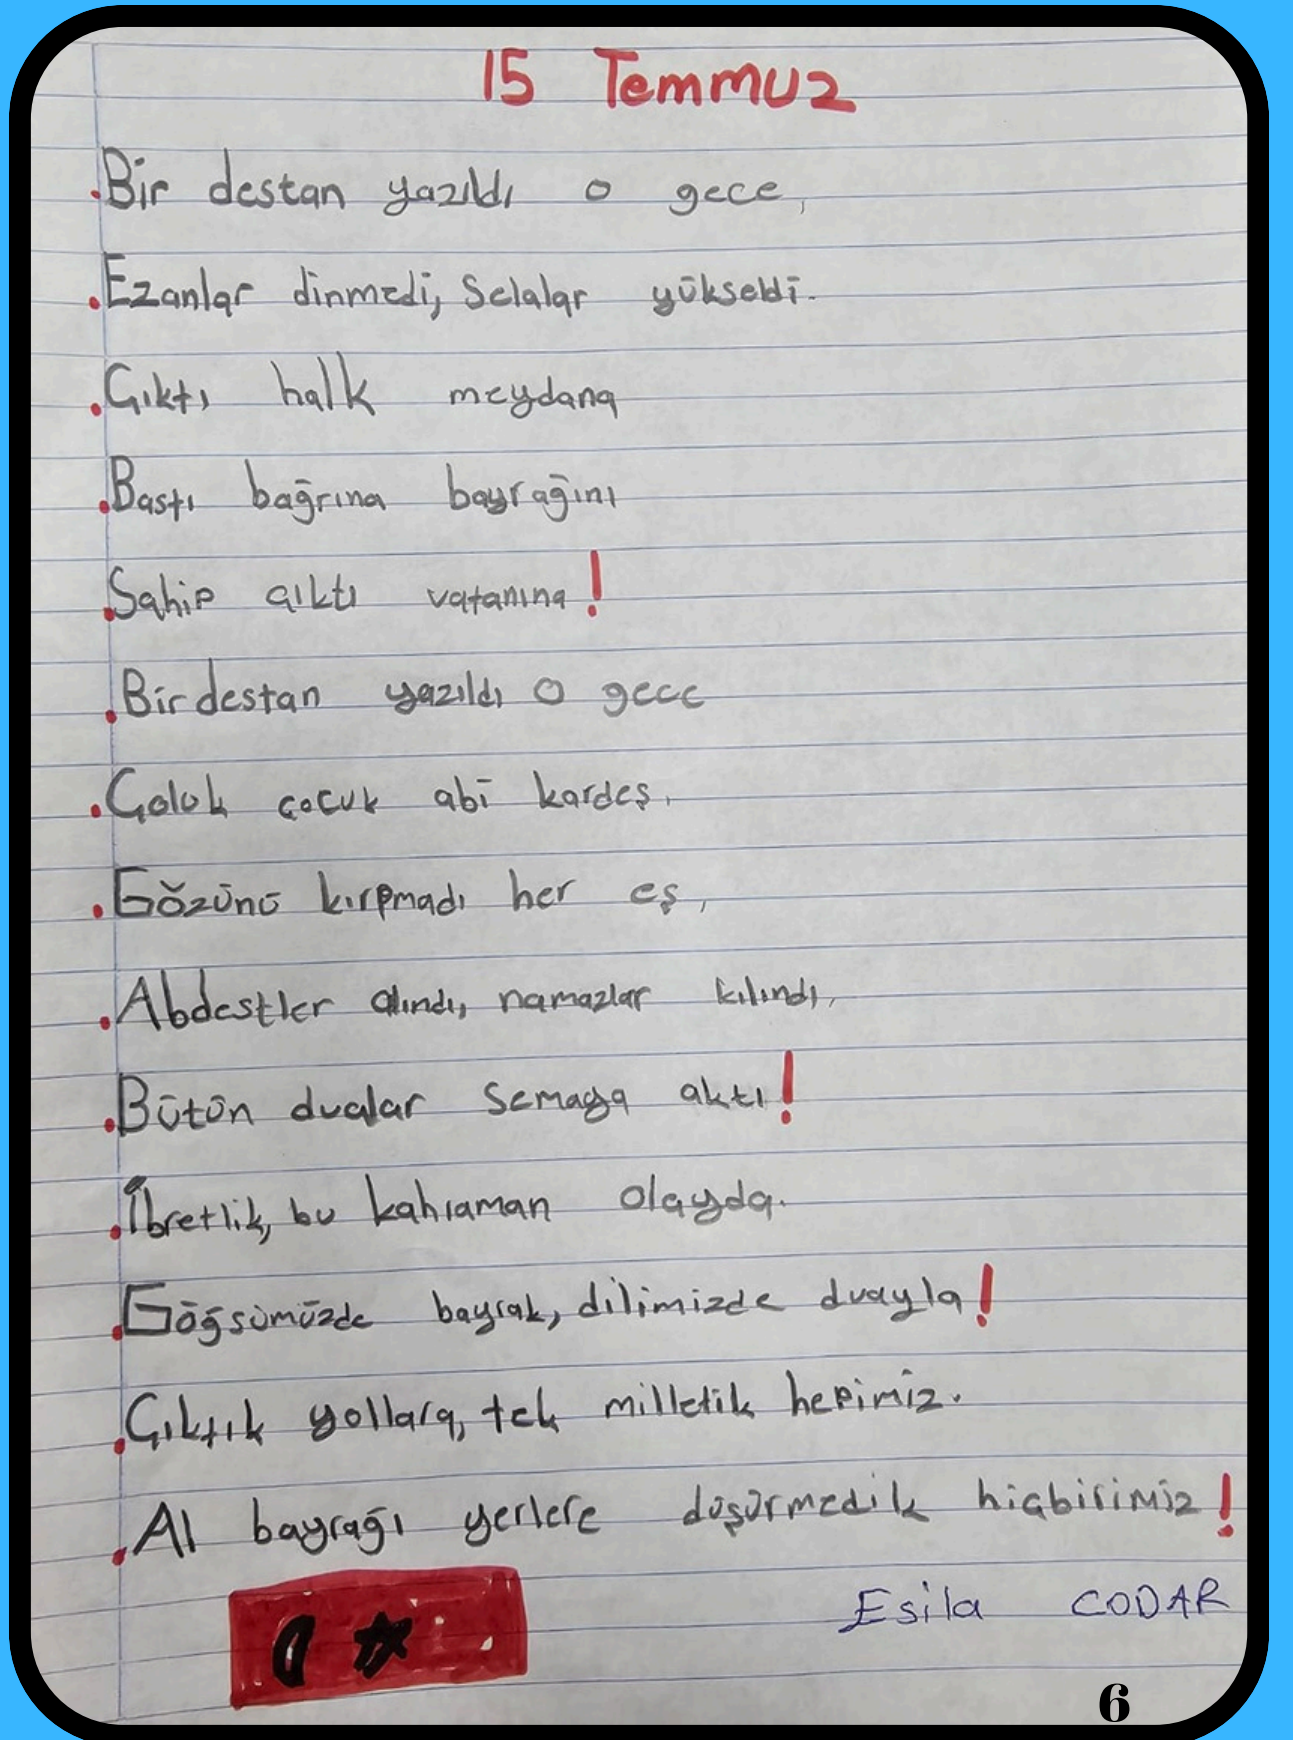 15 Temmuz
Bir destan yazıldı o gece,
Ezanlar dinmedi, Selalar yükseldi.
Çıktı halk meydana
Bastı bağrına bayrağını
Sahip çıktı vatanına!
Bir destan yazıldı o gece
Çoluk çocuk abi kardeş,
Gözünü kırpmadı her eş,
Abdestler alındı, namazlar kılındı,
Bütün dualar Semaya aktı!
İbretlik, bu kahraman olayda.
Göğsümüzde bayrak, dilimizde duayla!
Çıktık yollara, tek milletik hepimiz.
Al bayrağı yerlere düşürmedik hiçbirimiz!
Esila CODAR
6